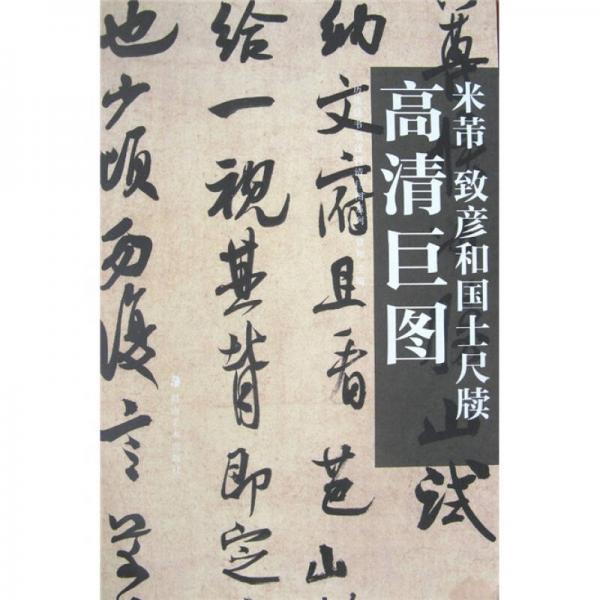 米芾 致彦和国士尺牍
高清巨图
山试
纳文府且看芭山
给一视其背即定
也少顷勿复言